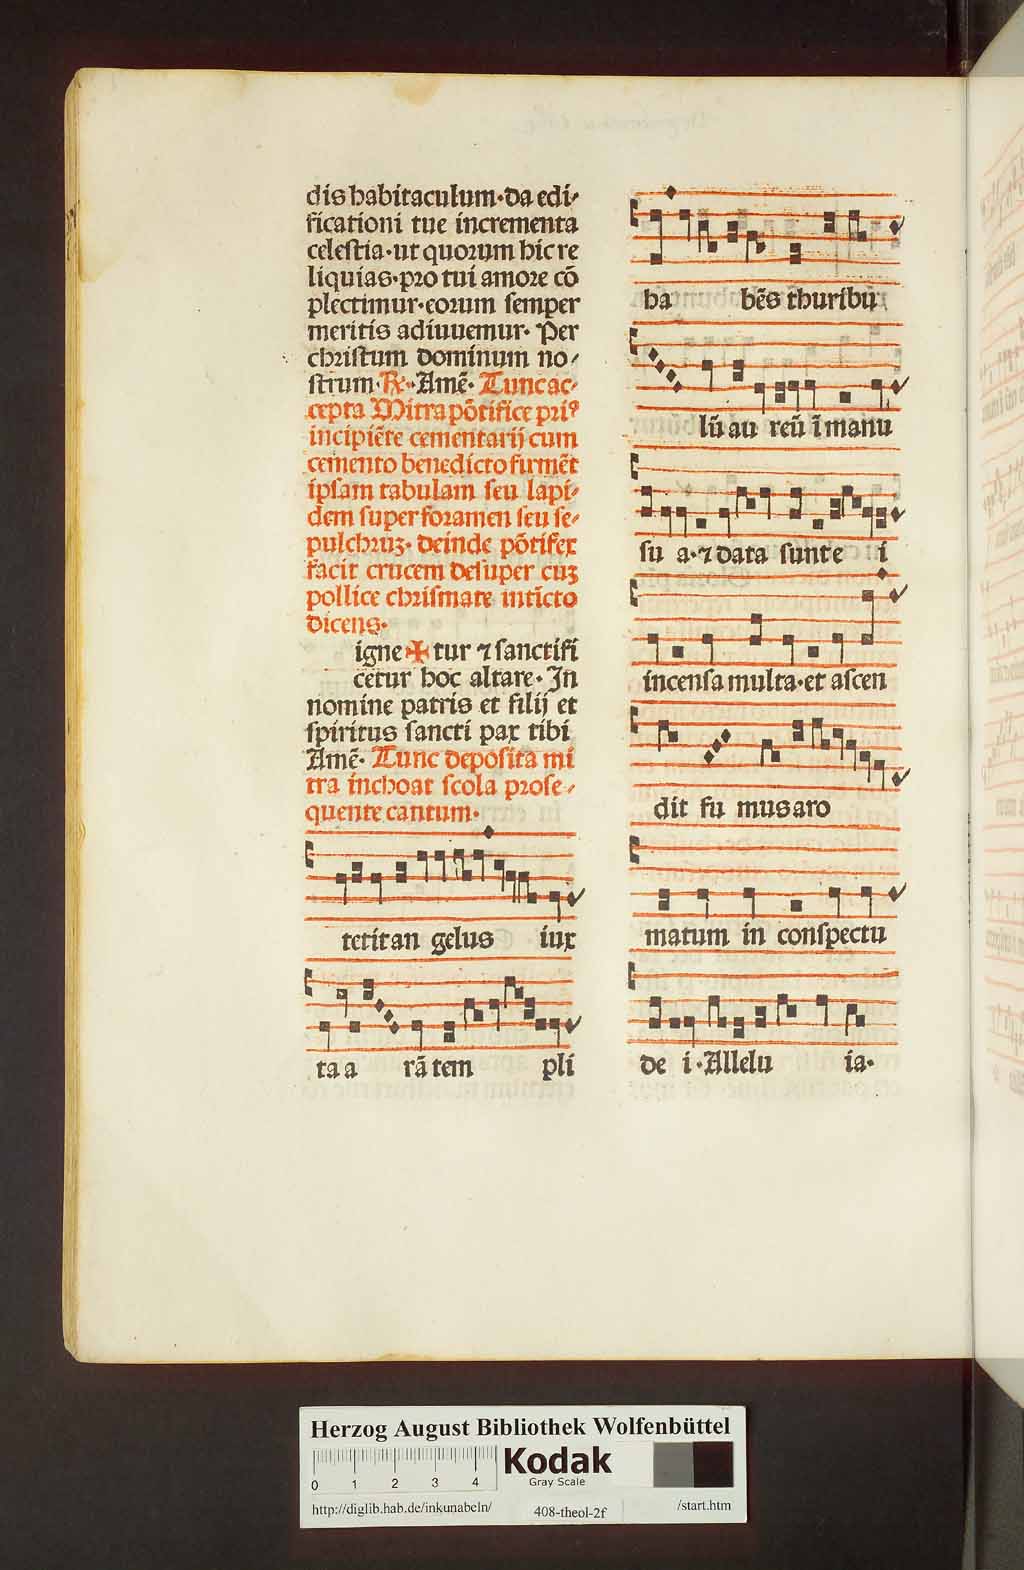 dis habitaculum·da edi⸗
ficationi tue incrementa
celestia·ut quorum hic re
liquias·pro tui amore cō
plectimur·eorum semper
meritis adiuuemur· Per
christum dominum no⸗
strum·℟·Amē· Tunc ac⸗
cepta Mitra pōtifice priꝰ
incipiēte cementarij cum
cemento benedicto firmēt
ipsam tabulam seu lapi⸗
dem super foramen seu se⸗
pulchrūꝫ· deinde pōtifex
facit crucem desuper cuꝫ
pollice chrismate intīcto
dicens·
igne✠tur ⁊ sanctifi
cetur hoc altare· In
nomine patris et filij et
spiritus sancti pax tibi
Amē· Tunc deposita mi
tra inchoat scola prose⸗
quente cantum·
tetit an gelus iux
ta a rā tem pli
ha bēs thuribu
lū au reū ī manu
su a·⁊ data sunt e i
incensa multa·et ascen
dit fu mus aro
matum in conspectu
de i·Allelu ia·
Herzog August Bibliothek Wolfenbüttel
0 1 2 3 4
Kodak
Gray Scale
http://diglib.hab.de/inkunabeln/ 408-theol-2f /start.htm